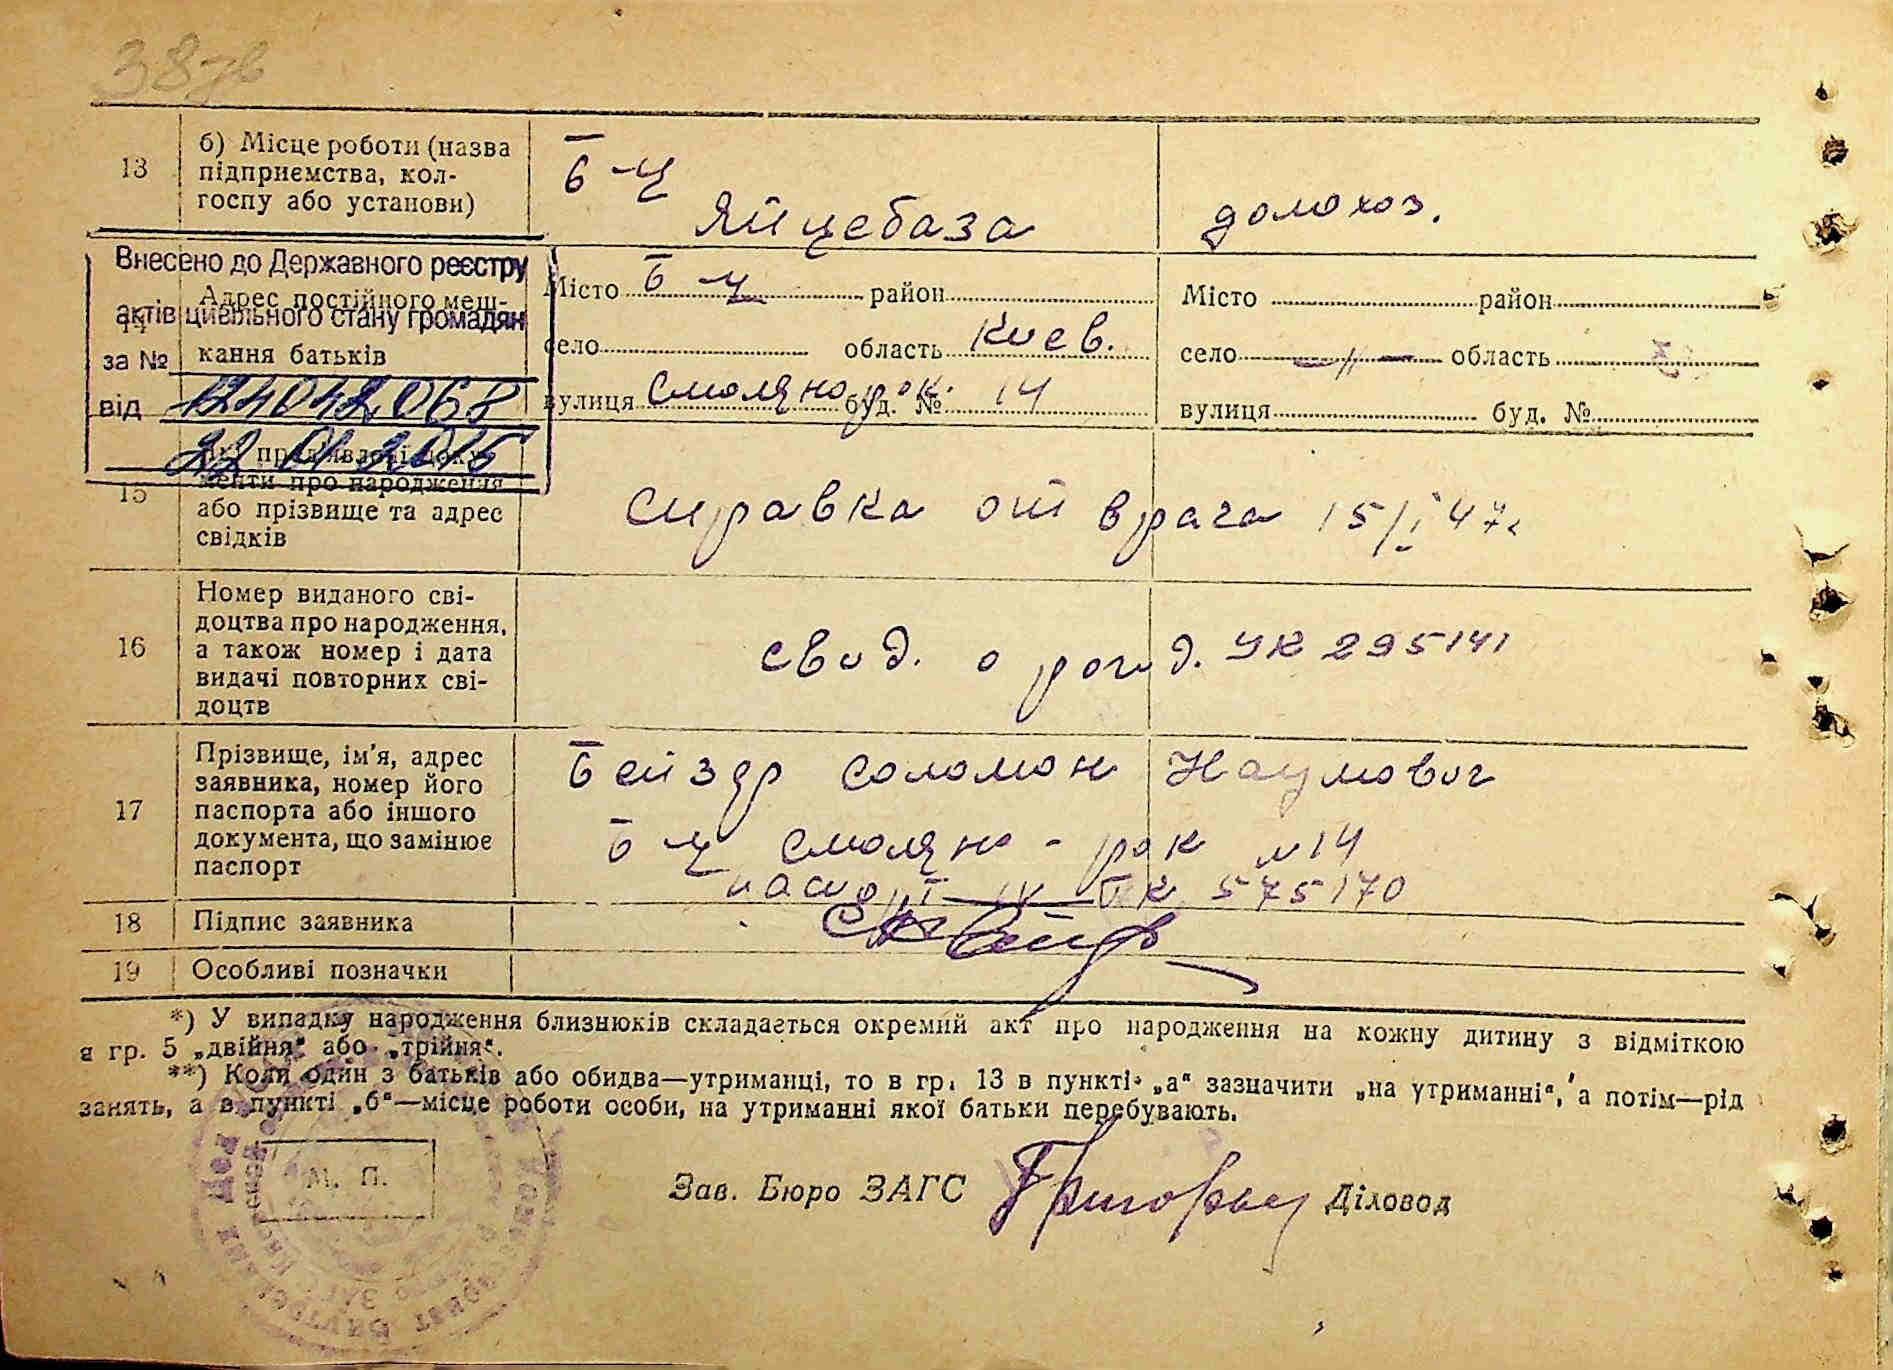 38зв
13
б) Місце роботи (назва
підприємства, кол-
госпу або установи)
Б-Ц
Яйцебаза
домохоз.
Внесено до Державного реєстру
актів цивільного стану громадян
за №
від
22 01 2015
14
Адрес постійного меш-
кання батьків
Місто Б-Ц район
село область Киев.
вулиця Смоляно рок. буд. № 14
Місто район
село -〃- область
вулиця буд. №
15
Які пред'явлені доку-
менти про народження
або прізвище та адрес
свідків
Справка от врача 15/I 47г
16
Номер виданого сві-
доцтва про народження,
а також номер і дата
видачі повторних сві-
доцтв
Свид. о рожд. УК 295141
17
Прізвище, ім'я, адрес
заявника, номер його
паспорта або іншого
документа, що замінює
паспорт
Бейдер Соломон Наумович
Б-Ц Смоляно-рок №14
паспорт IV ПК 575170
18
Підпис заявника
19
Особливі позначки
*) У випадку народження близнюків складається окремий акт про народження на кожну дитину з відміткою
в гр. 5 „двійня“ або „трійня“.
**) Коли один з батьків або обидва—утриманці, то в гр. 13 в пункті „а“ зазначити „на утриманні“, а потім—рід
занять, а в пункті „б“—місце роботи особи, на утриманні якої батьки перебувають.
М. П.
Зав. Бюро ЗАГС
Діловод